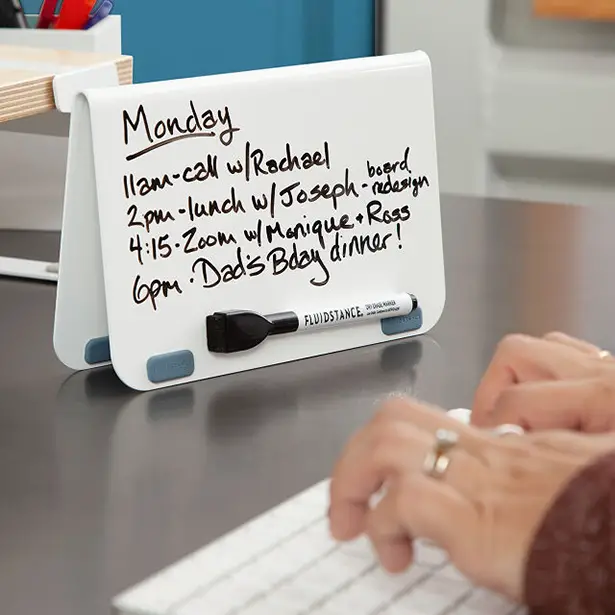 Monday
11am-call w/Rachael
2pm-lunch w/Joseph-board redesign
4:15·Zoom w/Monique+Ross
6pm·Dad's Bday dinner!
FLUIDSTANCE. DRY ERASE MARKER